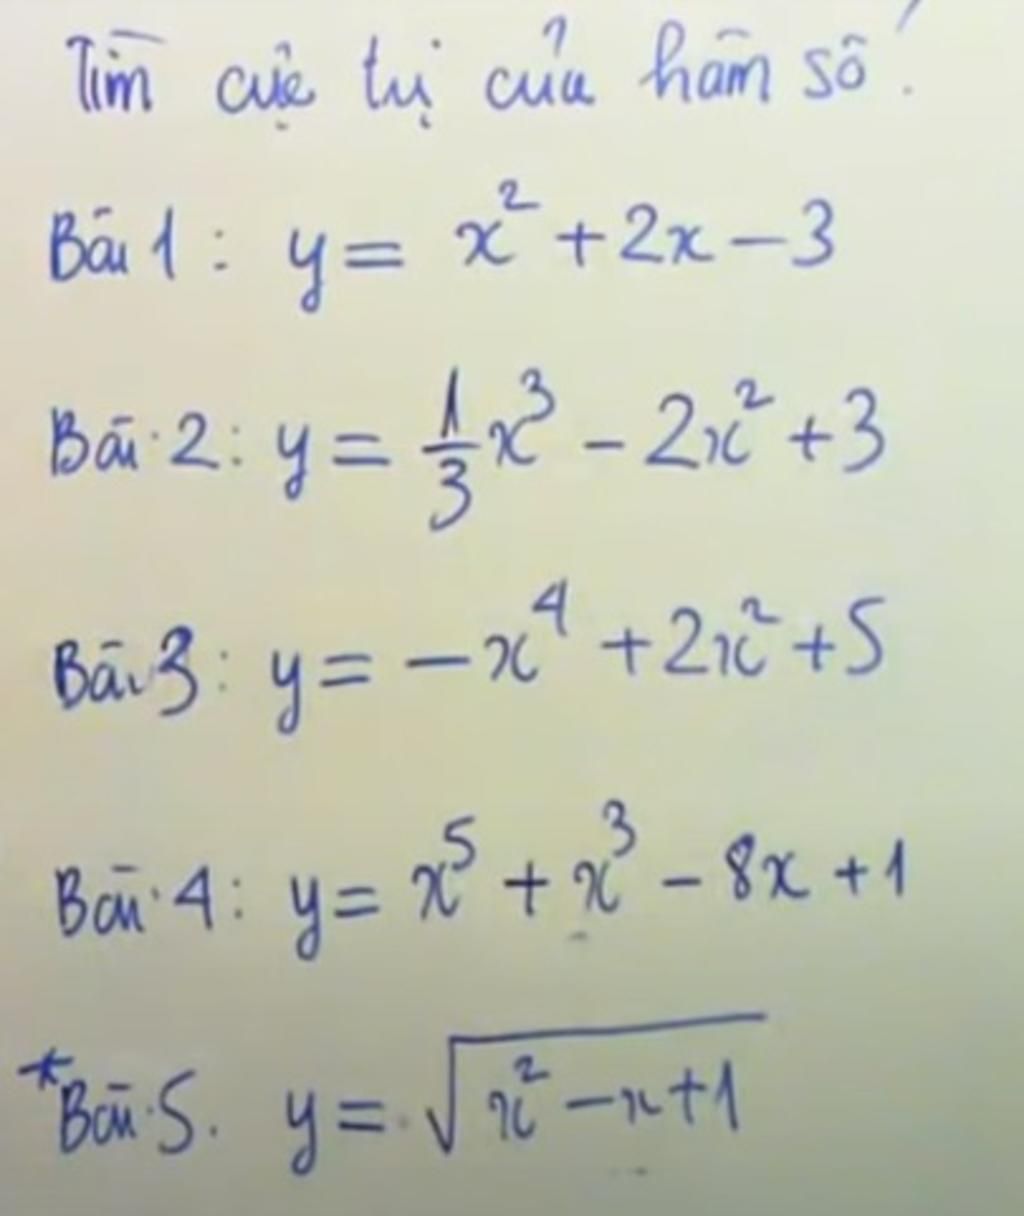 Tìm cực trị của hàm số:
Bài 1: y = x² + 2x - 3
Bài 2: y = 1/3 x³ - 2x² + 3
Bài 3: y = -x⁴ + 2x² + 5
Bài 4: y = x⁵ + x³ - 8x + 1
*Bài 5. y = √(x² - x + 1)